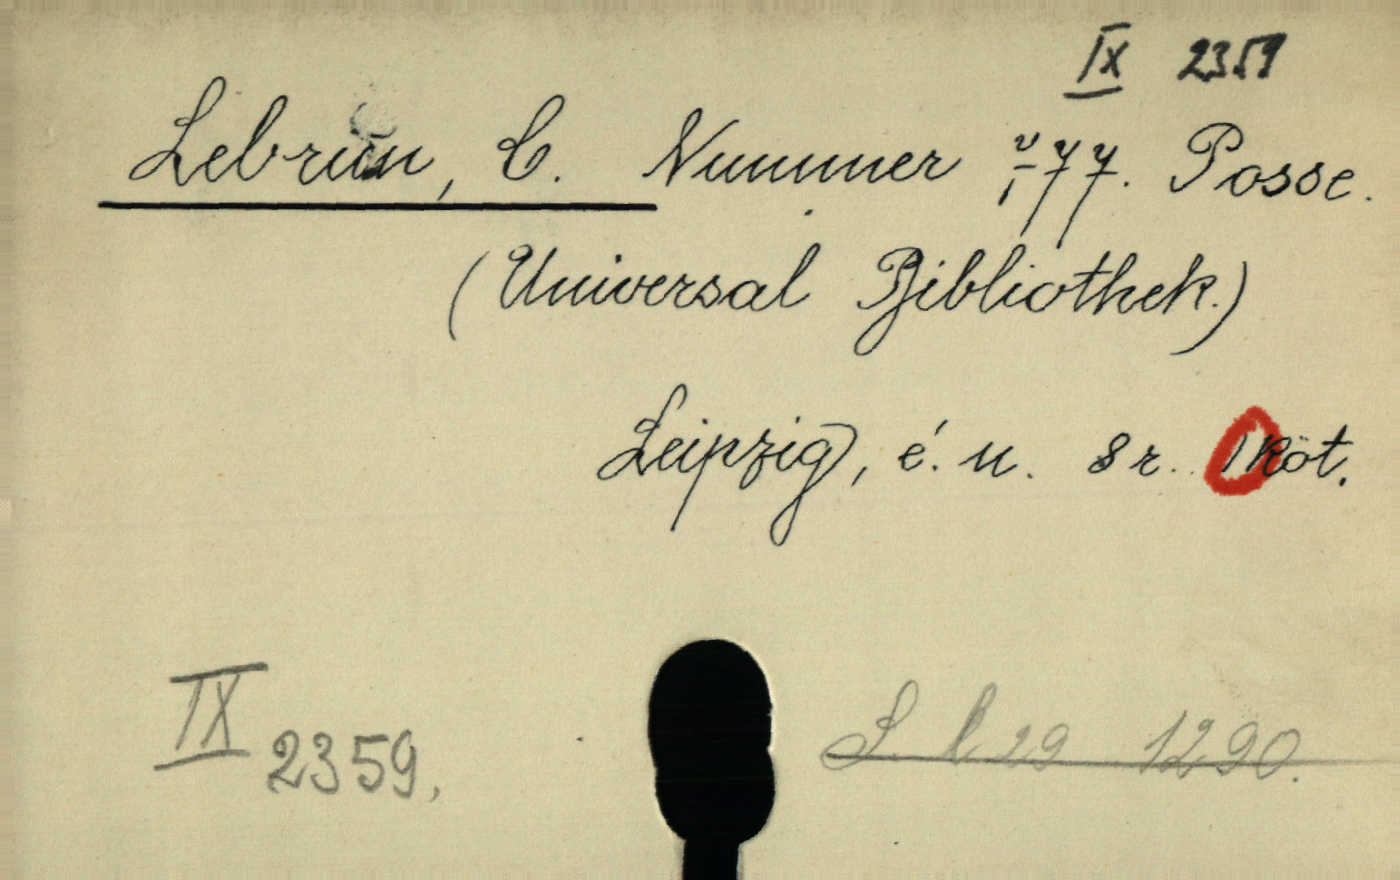 IX 2359
Lebrun, C. Nummer 777. Posse.
(Universal Bibliothek.)
Leipzig, é. n. 8 r. 1 köt.
IX 2359.
1290.